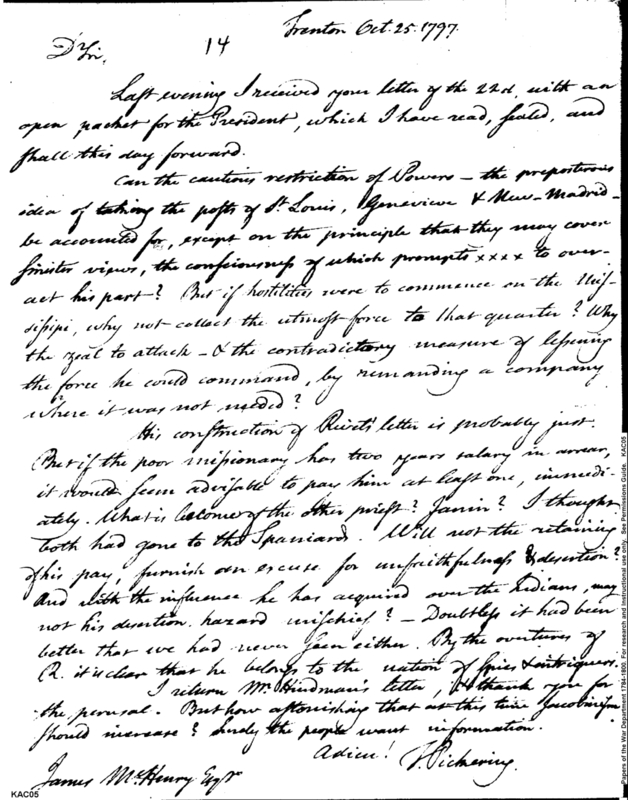 Trenton Oct. 25. 1797.
Dr Sir, 14
Last evening I received your letter of the 22d. with an
open packet for the President, which I have read, sealed, and
shall this day forward.
Can the cautious restriction of Powers — the preposterous
idea of taking the posts of St. Louis, Genevieve & New-Madrid —
be accounted for, except on the principle that they may cover
sinister views, the consciousness of which prompts xxxx to over-
act his part? But if hostilities were to commence on the Mis-
sisipi, why not collect the utmost force to that quarter? Why
the zeal to attack — & the contradictory measure of lessening
the force he could command, by remanding a company
where it was not needed?
His construction of Rivet's letter is probably just.
But if the poor missionary has two years salary in arrear,
it would seem advisable to pay him at least one, immedi-
ately. What is become of the other priest? Janin? I thought
both had gone to the Spaniards. Will not the retaining
of his pay, furnish an excuse for unfaithfulness & desertion?
And with the influence he has acquired over the Indians, may
not his desertion hazard mischief? — Doubtless it had been
better that we had never seen either. By the overtures of
R. it is clear that he belongs to the nation of spies & intriguers.
I return Mr. Hindman's letter, & thank you for
the perusal. But how astonishing that at this time Jacobinism
should increase? Surely the people want information.
Adieu! T. Pickering.
James McHenry Esqr
KAC05
Papers of the War Department 1784-1800. For research and instructional use only. See Permissions Guide. KAC05